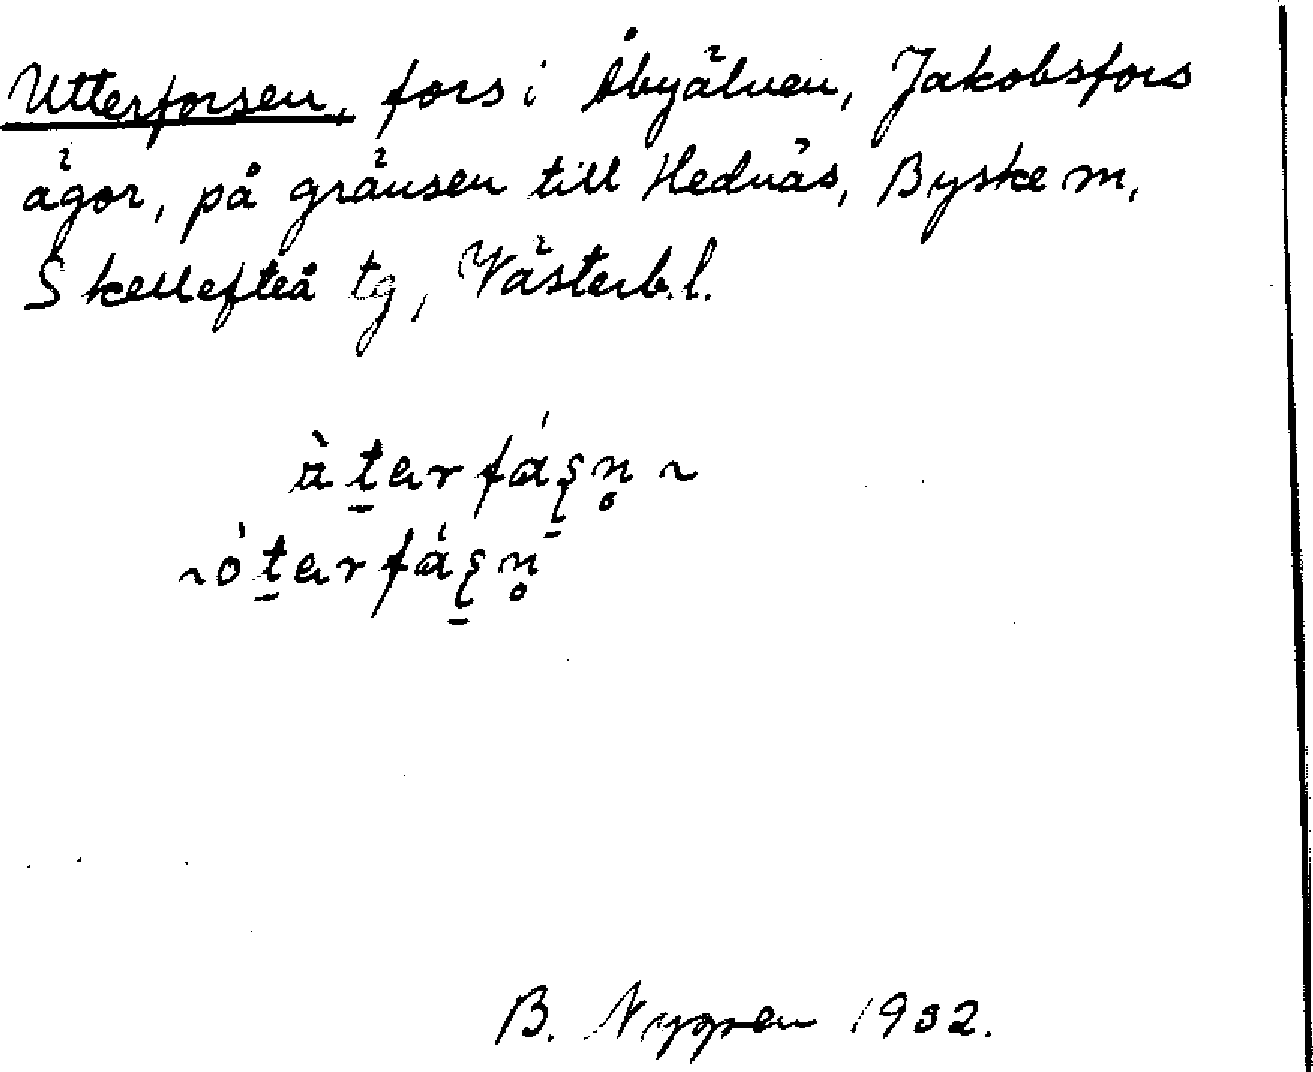 Utterforsen, fors i Åbyälven, Jakobsfors
ägor, på gränsen till Hednäs, Byske m,
Skellefteå tg, Västerb. l.
B. Nygren 1932.